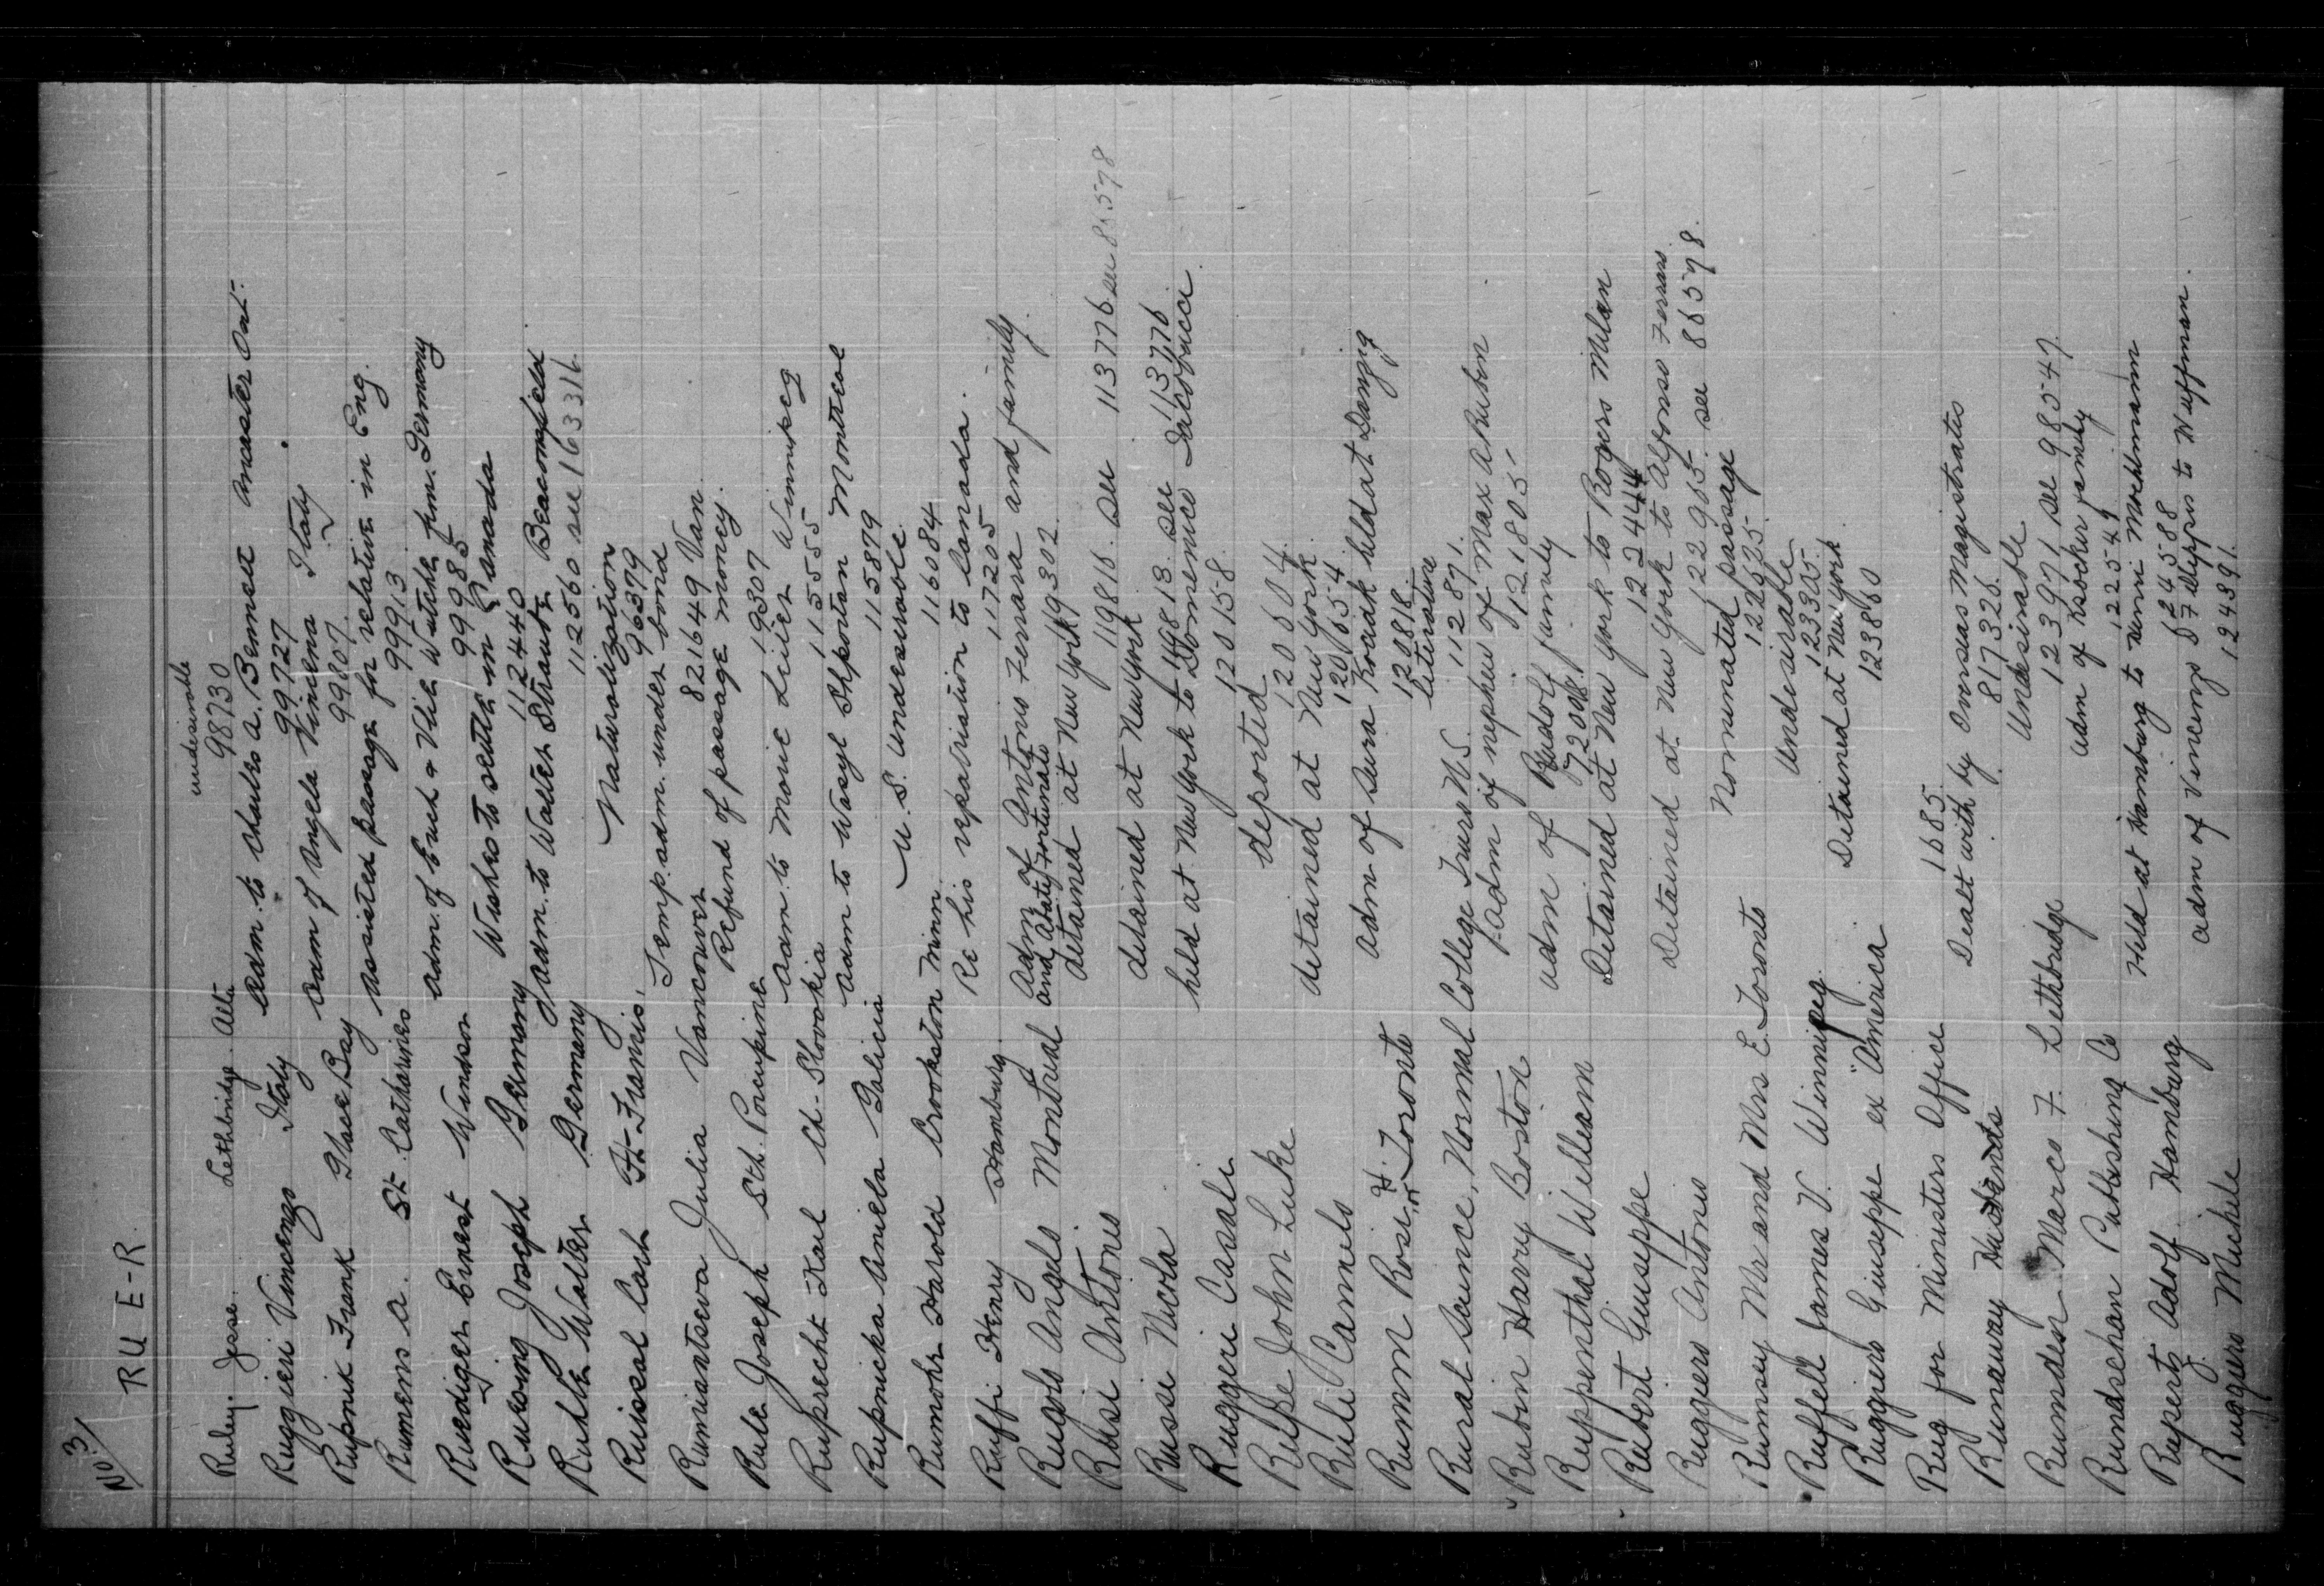 No 3
RU E-R
undesirable
Ruley Jesse. Lethbridge Alta 98730
Adm. to Charles A. Bennett Ancaster Ont.
Ruggieri Vincenzo Italy 99727
Adm of Angela Vincena Italy
Rupnik Frank Glace Bay 99807
Assisted passage for relative in Eng.
Rumens A. St. Catharines 99913
Adm. of Emil & Vtie Wutche frm. Germany
Ruediger Ernest Windsor 99985
Wishes to settle in Canada
Ruewing Joseph Germany 112440
Adm. to Walter Strautz Beaconsfield
Ruhle Walter Germany 112560 see 163316
Naturalization
Ruissal Cash Ft. Francis, 96379
Temp. adm. under bond
Rumiantseva Julia Vancouver 821649 Van.
Vancouver Refund of passage money.
Rule Joseph Sth. Porcupine 19307
Adm. to Monie Leiier Winnipeg
Ruprecht Karl Ch-Slovakia 115555
Adm to Wasyl Shportan Montreal
Rupnicka Aniela Galicia 115879
U.S. undesirable.
Rumohr Harold Crookston Minn. 116084
Re his repatriation to Canada.
Ruffi Henry Hamburg. 117205
Adm. of Antonio Ferrara and family.
and Abaty Fortunato
Rugolo Angelo Montreal 19302
detained at New York
Rusi Antonio 119816. see 113776 see 865798
detained at New York
Russi Nicola 119813 see 113776
held at New York to Domenico Iacofucci
Ruggeri Casali 120158
deported
Rulfe John Luke 120604
detained at New York
Rule Camelo 120654
Adm of Sura Kozak held at Danzig
Rumm Rosi or H. Toronto 120818
literature
Rural Science, Normal College Truro N.S. 112871.
Adm of nephew of Max A Ruben
Rubin Harry Boston 121805
Adm of Rudolf family
Ruppenthal William 72008
Detained at New York to Rogers Milan
Rubert Giuseppe 122444
Detained at New York to Alfonso Ferraro
Ruggiero Antonio 122965 see 865798.
Nominated passage
Rumsey Mr and Mrs E. Toronto 122625
Undesirable
Ruffell James V. Winnipeg 123305
Detained at New York
Ruggiero Giuseppe ex "America" 123860
Rug for Ministers Office 1685
Dealt with by Overseas Magistrates
Runaway Husbands 817326
Undesirable
Rumsden Marco F. Lethbridge 123971 see 98547
Adm of Ksocker family
Rundschan Publishing Co 122549
Held at Hamburg to Mimi Moehlmann
Ruperti Adolf Hamburg 124588
Adm of Vincenzo &
Ruggiero Michele 124391.